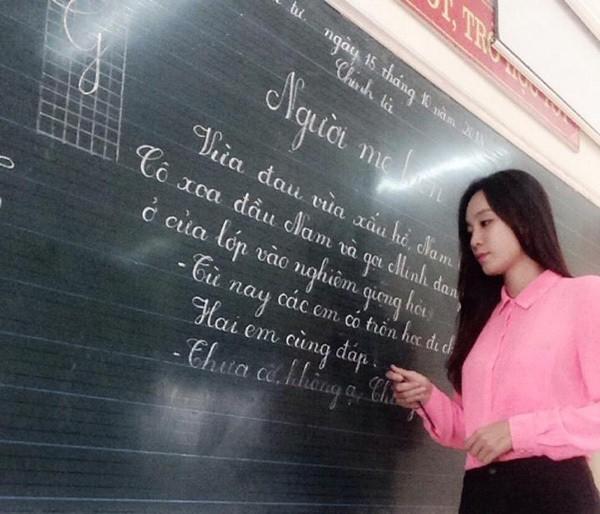 ỐT, TRÒ HỌC TỐT
G
tư ngày 15 tháng 10 năm
Chính tả
Người mẹ hiền
Vừa đau vừa xấu hổ, Nam
Cô xoa đầu Nam và gọi Minh đang
ở cửa lớp vào nghiêm giọng hỏi
- Từ nay các em có trốn học đi ch
Hai em cùng đáp.
- Thưa cô, không ạ. Ch